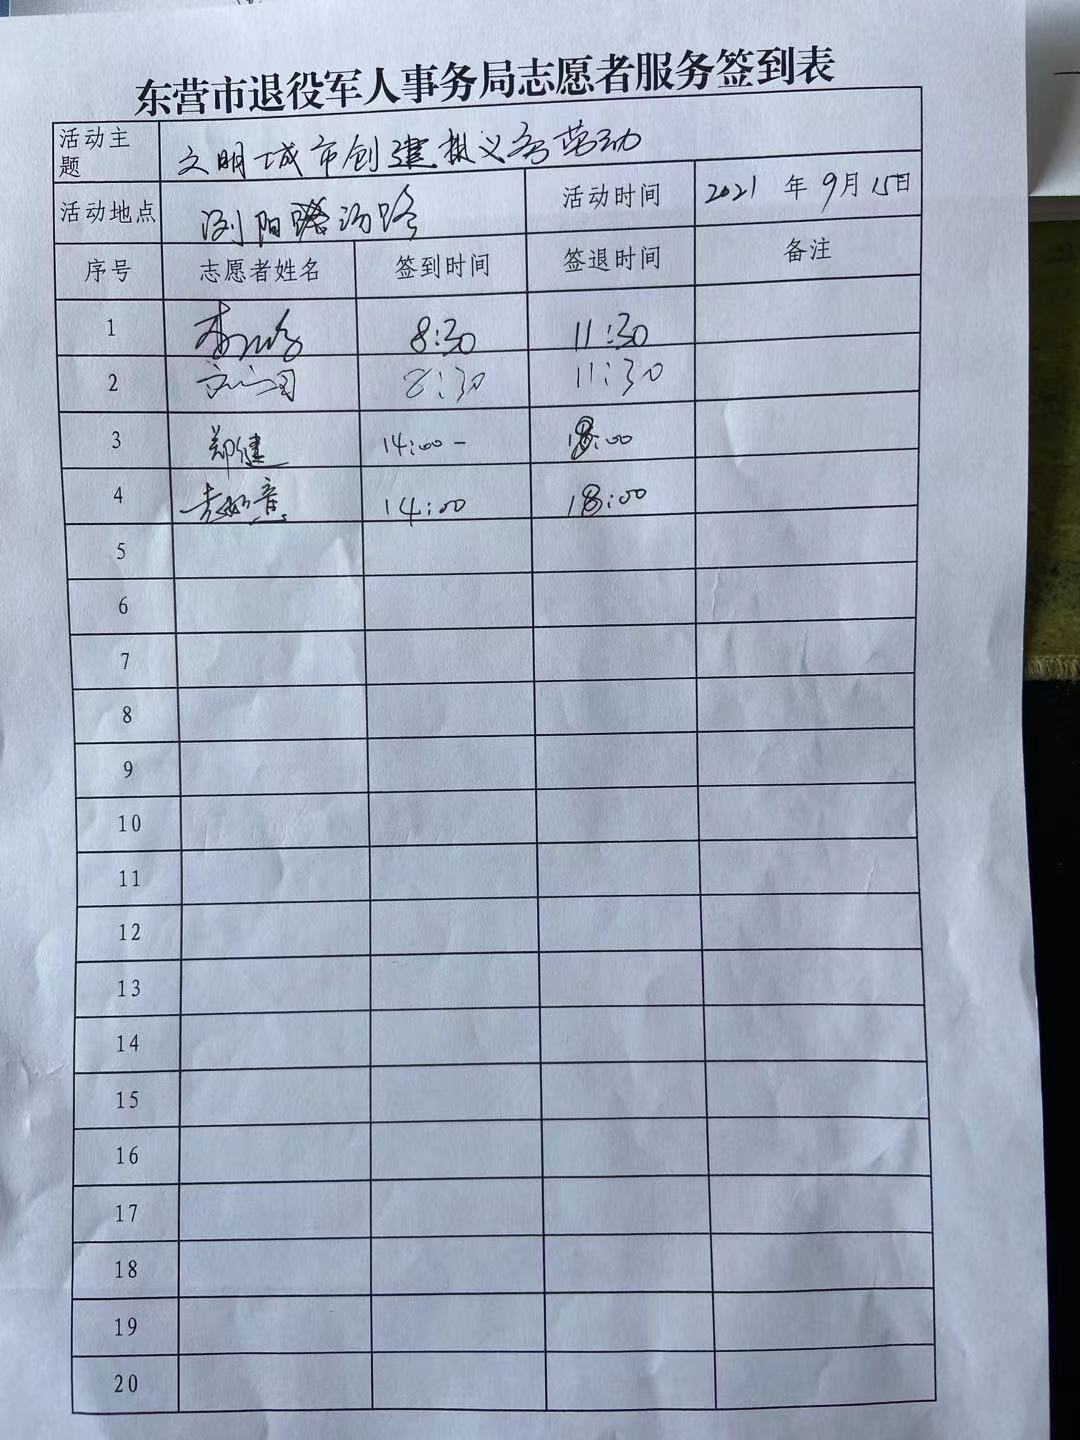 东营市退役军人事务局志愿者服务签到表
活动主题 文明城市创建 义务劳动
活动地点 浏阳 路 活动时间 2021 年 9月 15日
序号 志愿者姓名 签到时间 签退时间 备注
1 8:30 11:30
2 8:30 11:30
3 郑健 14:00- 18:00
4 14:00 18:00
5
6
7
8
9
10
11
12
13
14
15
16
17
18
19
20